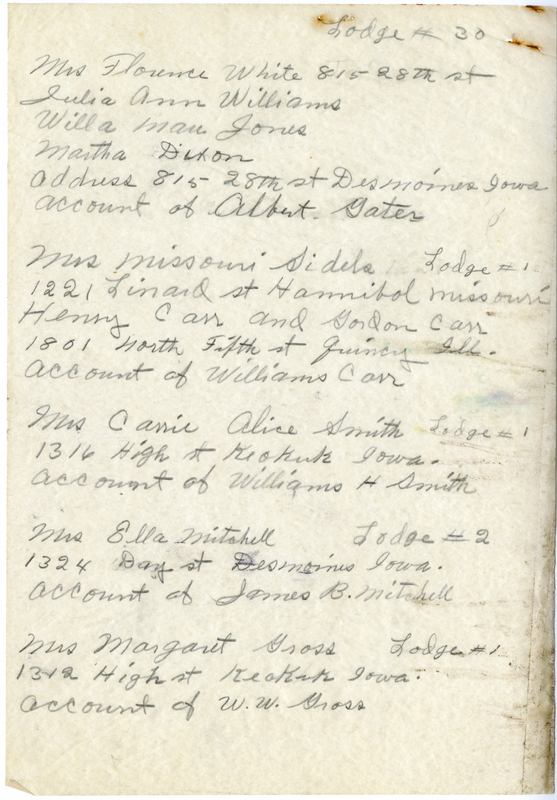 Lodge # 30
Mrs Florence White 815 28th st
Julia Ann Williams
Willa Mau Jones
Martha Dixon
address 815 28th st Desmoines Iowa
account of Albert. Gater
Mrs Missouri Sidels Lodge #1
1221 Linard st Hannibol Missouri
Henry Carr and Gordon Carr
1801 North Fifth st Quincy Ill.
account of Williams Carr
Mrs Carrie Alice Smith Lodge #1
1316 High st Keokuk Iowa.
account of Williams H Smith
Mrs Ella Mitchell Lodge # 2
1324 Day st Desmoines Iowa.
account of James B. Mitchell
Mrs Margaret Gross Lodge #1.
1312 High st Keokuk Iowa.
account of W.W. Gross